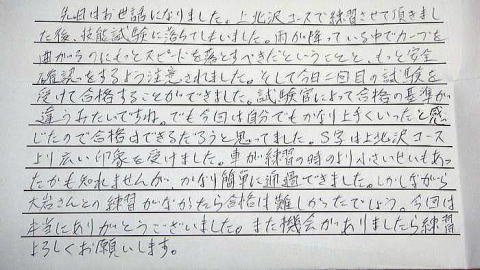 先日はお世話になりました。上北沢コースで練習させて頂きまし
た後、技能試験に落ちてしまいました。雨が降っている中でカーブを
曲がるのにもっとスピードを落とすべきだということと、もっと安全
確認をするよう注意されました。そして今日二回目の試験を
受けて合格することができました。試験官によって合格の基準が
違うみたいですね。でも今回は自分でもかなり上手くいったと感
じたので合格はできるだろうと思ってました。S字は上北沢コース
より広い印象を受けました。車が練習の時のより小さいせいもあっ
たかも知れませんが、かなり簡単に通過できました。しかしながら
大岩さんとの練習がなかったら合格は難しかったでしょう。今回は
本当にありがとうございました。また機会がありましたら練習
よろしくお願いします。